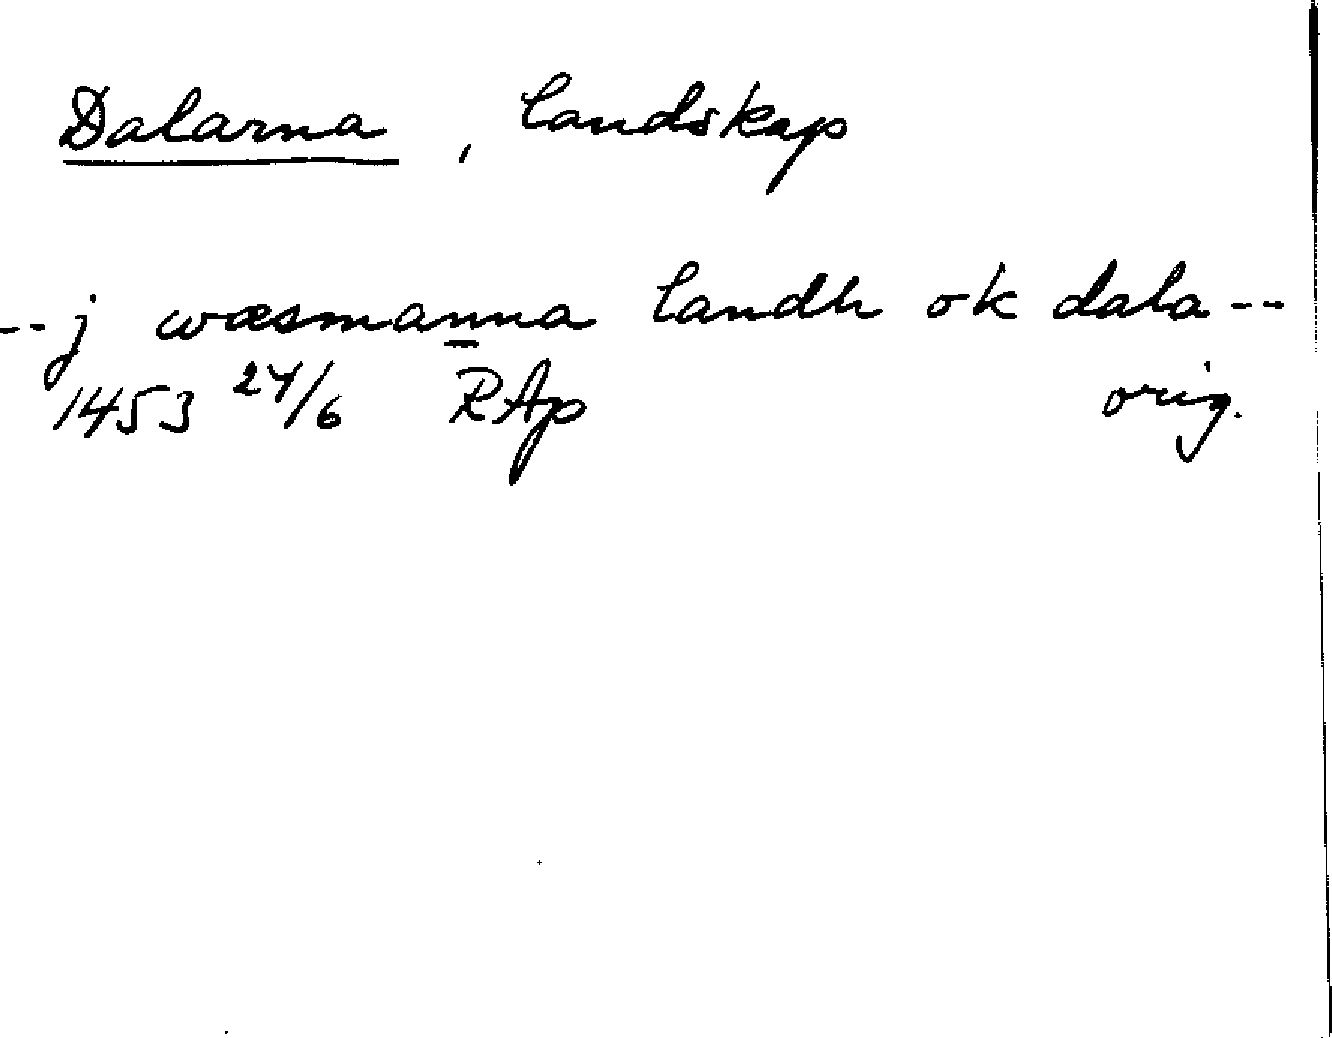 Dalarna, landskap
-- j wæsmanna landh ok dala --
1453 24/6 RAp orig.